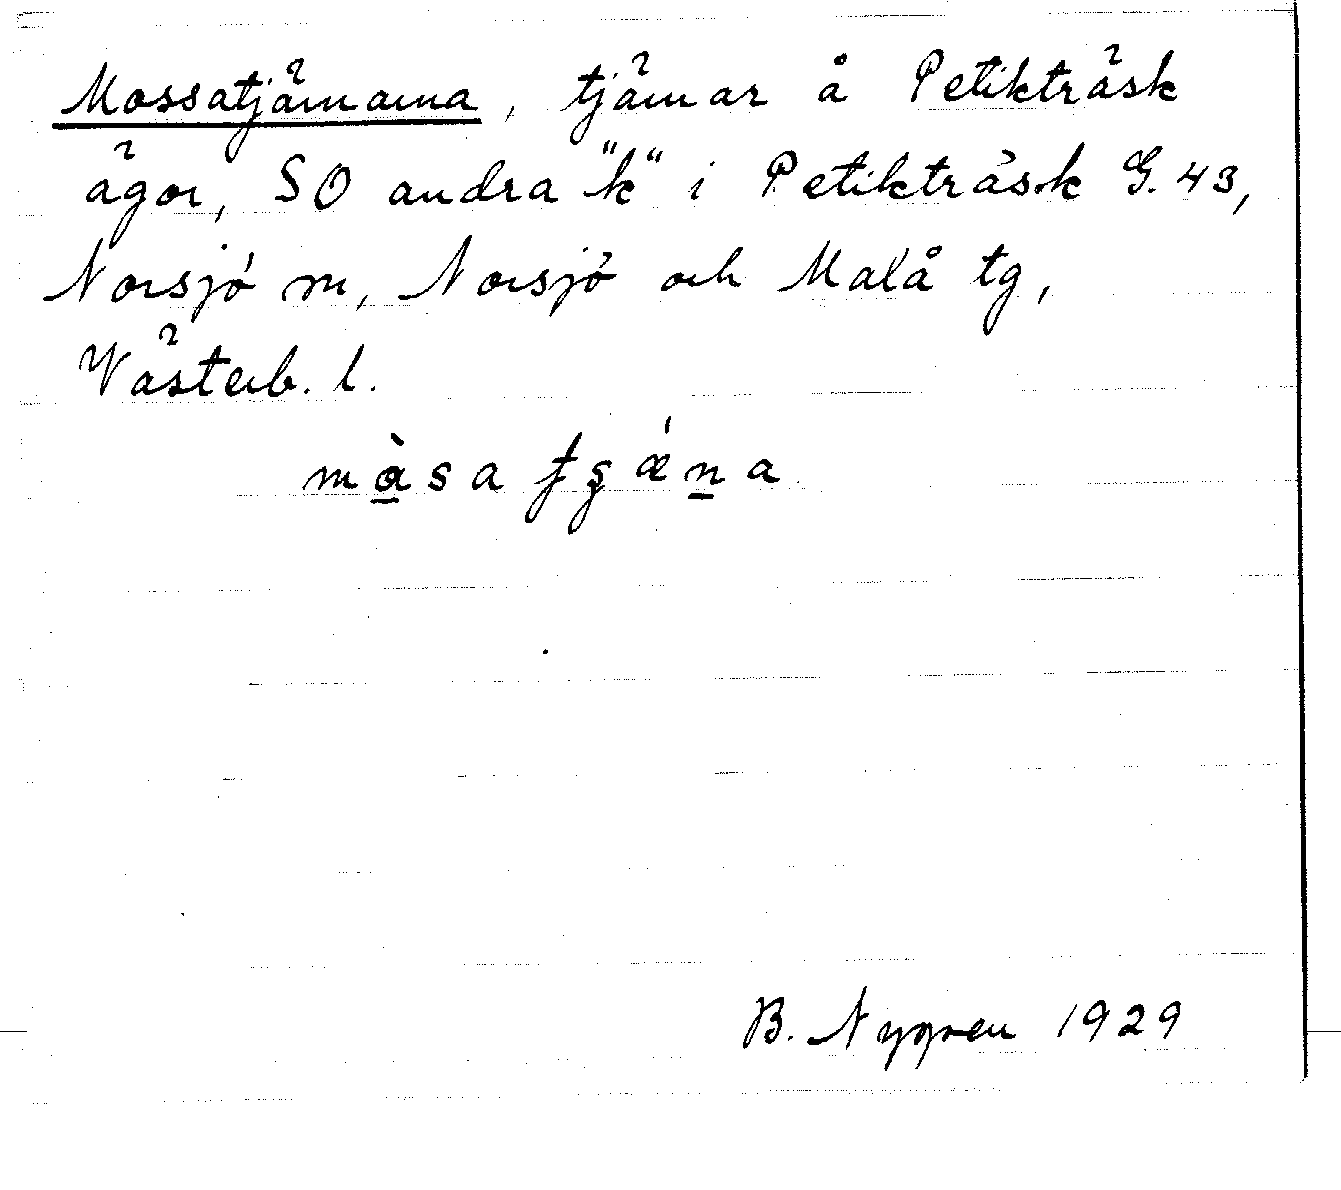 Mossatjärnarna, tjärnar å Petikträsk
ägor, SO andra "k" i Petikträsk G. 43,
Norsjö sn, Norsjö och Malå tg,
Västerb. l.
màsa tʂǽna
B. Nygren 1929